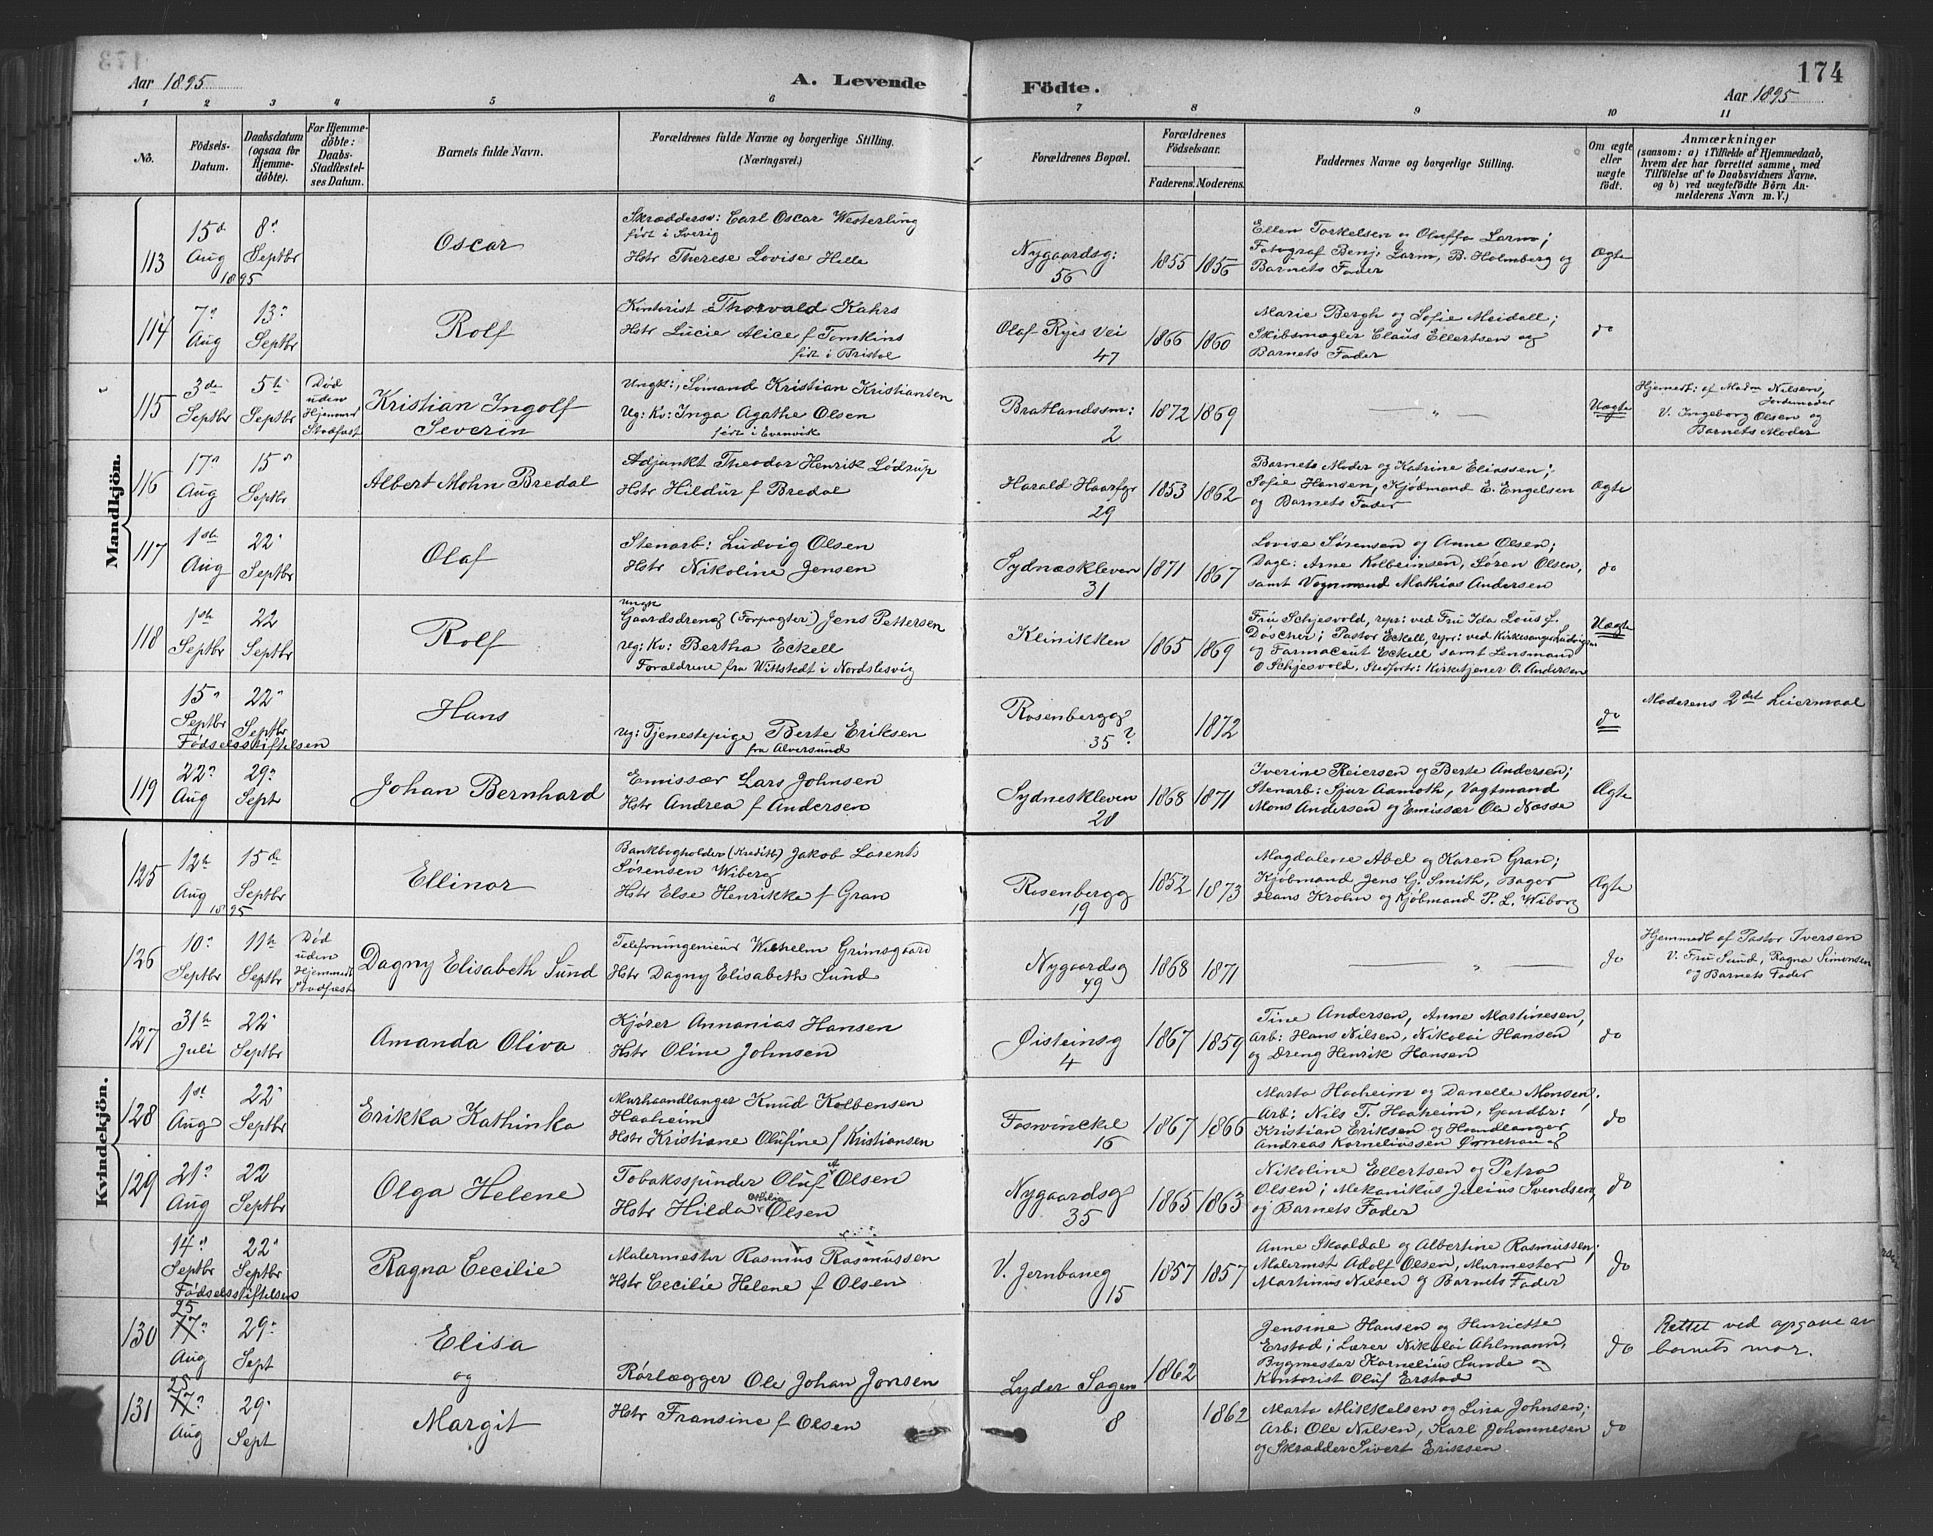 Aar 1895
A. Levende
Födte.
174
Aar 1895
1 2 3 4 5 6 7 8 9 10 11
No.
Födsels-Datum.
Daabsdatum (ogsaa för Hjemme-döbte).
For Hjemme-döbte: Daabs-Stadfæstel-ses Datum.
Barnets fulde Navn.
Forældrenes fulde Navne og borgerlige Stilling.
(Næringsvei.)
Forældrenes Bopæl.
Forældrenes Födselsaar.
Faderens. Moderens.
Faddernes Navne og borgerlige Stilling.
Om ægte eller uægte födt.
Anmærkninger
(saasom: a) i Tilfælde af Hjemmedaab,
hvem der har forrettet samme, med
Tilföielse af to Daabsvidners Navne,
og b) ved uægtefödte Börn An-
melderens Navn m. V.)
Mandkjön.
113
15de Aug 1895
8de Septbr
Oscar
Skræddersv: Carl Oscar Westerling
født i Sverig
Hstr Therese Lovise Hille
Nygaardsg: 56
1855 1856
Ellen Torkelsen og Oluffa Larm;
Fotograf Benj: Larm, B. Holmberg og
Barnets Fader
Ægte
114
7de Aug
13de Septbr
Rolf
Kontorist Thorvald Kahrs
Hstr Lucie Alice f Tomkins
født i Bristol
Olaf Ryes Vei 47
1866 1860
Marie Bergh og Sofie Meidell;
Skibsmægler Claus Ellertsen og
Barnets Fader
do
115
3de Septbr
5te Septbr
Død uden Hjemmed Stadfæst
Kristian Ingolf
Severin
Ungk:, Sømand Kristian Kristiansen
Ug: Kv: Inga Agathe Olsen
født i Evenvik
Bratlandssm: 2
1872 1869
— " —
Uægte
Hjemedt: af Madm Nilsen,
Jordemoder
V. Ingeborg Olsen og
Barnets Moder
116
17de Aug
15de Septbr
Albert Mohn Bredal
Adjunkt Theodor Henrik Lødrup
Hstr Hildur f Bredal
Harald Haarfgr 29
1853 1862
Barnets Moder og Katrine Eliassen;
Sofie Hansen, Kjøbmand E. Engelsen
og Barnets Fader
Ægte
117
1ste Aug
22de Septbr
Olaf
Stenarb: Ludvig Olsen
Hstr Nikoline Jensen
Sydnæskleven 31
1871 1867
Lovise Sørensen og Anne Olsen;
Dage: Arne Kolbeinsen, Søren Olsen,
samt Vognmand Mathias Andersen
do
118
1ste Septbr
22 Septbr
Rolf
Ungk
Gaardsdreng (Forpagter) Jens Pettersen
Ug: Kv: Bertha Eckell
Forældrene fra Wittstedt i Nordslesvig
Klinikken
1865 1869
Fru Schjesvold, repr: ved Fru Ida Lous f.
Døscher; Pastor Eckell, repr: ved Kirkesanger Ludvigsen
og Farmaceut Eckell samt Lensmand
O Schjesvold, Stedfortr: Kirketjener O. Andersen
Uægte
15de Septbr
22de Septbr
Fødselsstiftelsen
Hans
Ug: Tjenestepige Berte Eriksen
fra Alversund
Rosenbergg 35?
1872
do
Moderens 2det Leiermaal
119
22de Aug
29de Sept
Johan Bernhard
Emissær Lars Johnsen
Hstr Andrea f Andersen
Sydneskleven 20
1868 1871
Iverine Reiersen og Berte Andersen;
Stenarb: Sjur Aamoth, Vagtmand
Mons Andersen og Emissær Ola Næsse
Ægte
Kvindekjön.
125
12te Aug 1895
15de Septbr
Ellinor
Bankbogholder (Kreditb) Jakob Lorents
Sørensen Wiberg
Hstr Else Henrikke f Gran
Rosenbergg 19
1852 1873
Magdalene Abel og Karen Gran;
Kjøbmand Jens G. Smith, Bager
Jeans Krohn og Kjøbmand P. L. Wiborg
Ægte
126
10de Septbr
11te Septbr
Død uden Hjemmedt Stadfæst
Dagny Elisabeth Sund
Telefoningeniør Wilhelm Grimsgaard
Hstr Dagny Elisabeth Sund
Nygaardsg 49
1868 1871
— " —
do
Hjemmedt af Pastor Iversen
V. Fru Sund, Ragna Simonsen
og Barnets Fader
127
31te Juli
22de Septbr
Amanda Oliva
Kjører Annanias Hansen
Hstr Oline Johnsen
Øisteinsg 4
1867 1859
Tine Andersen, Anne Martinesen,
Arb: Hans Nilsen, Nikolai Hansen
og Dreng Henrik Hansen
do
128
1st Aug
22de Septbr
Erikka Kathinka
Murhaandlanger Knud Kolbensen
Haaheim
Hstr Kristiane Olufine f Kristiansen
Foswinckel 16
1867 1866
Marta Haaheim og Danelle Monsen,
Arb: Nils T. Haaheim, Gaardbr:
Kristian Eriksen og Haandlanger
Andreas Korneliussen Ørnehaug
do
129
21de Aug
22 Septbr
Olga Helene
Tobaksspinder Oluf A Olsen
Hstr Hilda Othilia Olsen
Nygaardsg 35
1865 1863
Nikoline Ellertsen og Petra
Olsen; Mekanikus Julius Svendsen
og Barnets Fader
do
14de Septbr
22de Septbr
Fødselsstiftelsen
Ragna Cecilie
Malermester Rasmus Rasmussen
Hstr Cecilie Helene f Olsen
V. Jernbaneg 15
1857 1857
Anne Skaaldal og Albertine Rasmussen;
Malermst Adolf Olsen, Murmester
Martinus Nilsen og Barnets Fader
do
130
25 17de Aug
29de Sept
Elisa
og
Rørlægger Ole Johan Jonsen
Lyder Sagen 8
1862
Jensine Hansen og Henriette
Erstad; Lærer Nikolai Ahlmann,
Bygmester Kornelius Sunde og
Kontorist Oluf Erstad
do
Rettet ved opgave av
barnets mor.
131
25 17de Aug
29de Sept
Margit
Hstr Fransine f Olsen
1862
Marta Mikkelsen og Lina Johnsen;
Arb: Ole Nilsen, Karl Johannesen
og Skrædder Sivert Eriksen
do